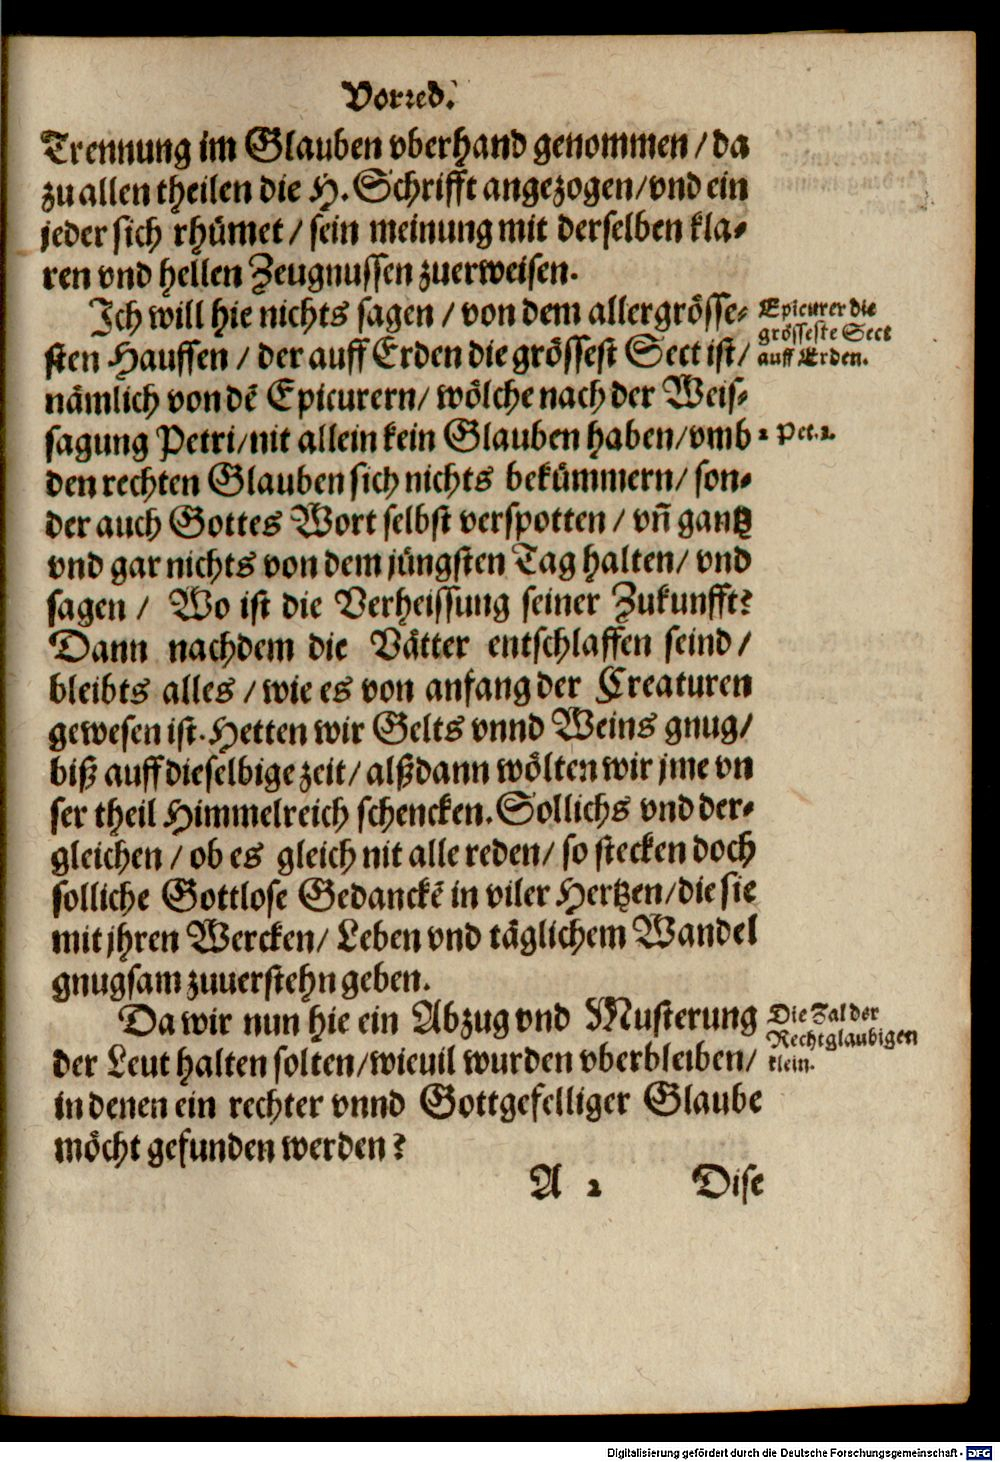 Vorred.
Trennung im Glauben vberhand genommen / da
zu allen theilen die H. Schrifft angezogen / vnd ein
jeder sich rhůmet / sein meinung mit derselben kla-
ren vnd hellen Zeugnussen zuerweisen.
Ich will hie nichts sagen / von dem allergrösse-
sten Hauffen / der auff Erden die grössest Sect ist /
Epicurer die
grösseste Sect
auff Erden.
nämlich von dē Epicurern / wölche nach der Weis-
sagung Petri / nit allein kein Glauben haben / vmb
2 Pet. 2.
den rechten Glauben sich nichts bekümmern / son-
der auch Gottes Wort selbst verspotten / vñ gantz
vnd gar nichts von dem jüngsten Tag halten / vnd
sagen / Wo ist die Verheissung seiner Zukunfft?
Dann nachdem die Vätter entschlaffen seind /
bleibts alles / wie es von anfang der Creaturen
gewesen ist. Hetten wir Gelts vnnd Weins gnug /
biß auff dieselbige zeit / alßdann wölten wir jme vn
ser theil Himmelreich schencken. Sollichs vnd der-
gleichen / ob es gleich nit alle reden / so stecken doch
solliche Gottlose Gedanckē in viler Hertzen / die sie
mit jhren Wercken / Leben vnd täglichem Wandel
gnugsam zuuerstehn geben.
Da wir nun hie ein Abzug vnd Musterung
der Leut halten solten / wieuil wurden vberbleiben /
Die Zal der
Rechtglaubigen
klein.
in denen ein rechter vnnd Gottgefelliger Glaube
möcht gefunden werden?
A 2 Dise
Digitalisierung gefördert durch die Deutsche Forschungsgemeinschaft - DFG